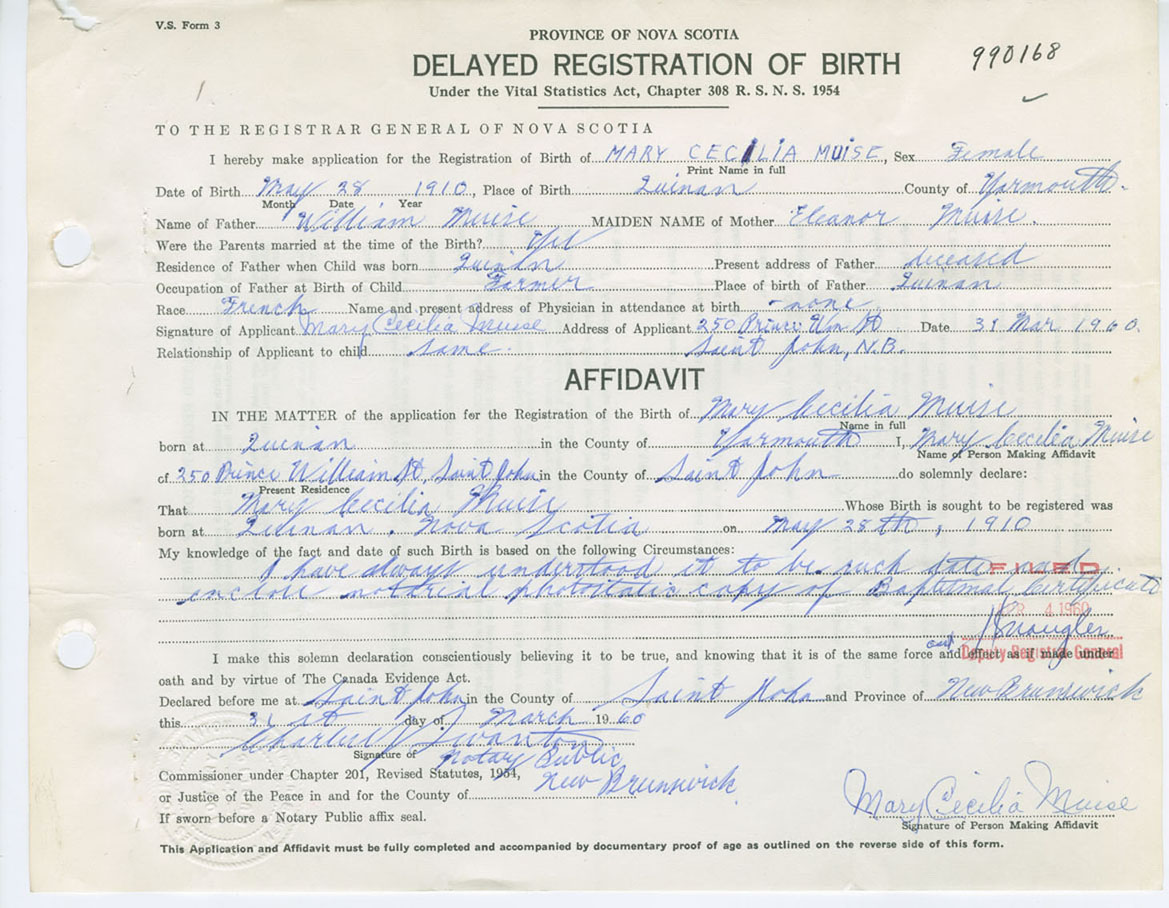 V.S. Form 3
PROVINCE OF NOVA SCOTIA
990168
DELAYED REGISTRATION OF BIRTH
Under the Vital Statistics Act, Chapter 308 R. S. N. S. 1954
TO THE REGISTRAR GENERAL OF NOVA SCOTIA
I hereby make application for the Registration of Birth of MARY CECILIA MUISE, Sex Female
Print Name in full
Date of Birth May 28 1910, Place of Birth Quinan County of Yarmouth.
Month Date Year
Name of Father William Muise MAIDEN NAME of Mother Eleanor Muise.
Were the Parents married at the time of the Birth? Yes
Residence of Father when Child was born Quinan Present address of Father deceased
Occupation of Father at Birth of Child Farmer Place of birth of Father Quinan
Race French Name and present address of Physician in attendance at birth - none
Signature of Applicant Mary Cecilia Muise Address of Applicant 250 Prince Wm St Date 31 Mar 1960.
Relationship of Applicant to child same. Saint John, N.B.
AFFIDAVIT
IN THE MATTER of the application for the Registration of the Birth of Mary Cecilia Muise
Name in full
born at Quinan in the County of Yarmouth I, Mary Cecilia Muise
Name of Person Making Affidavit
of 250 Prince William St, Saint John in the County of Saint John do solemnly declare:
Present Residence
That Mary Cecilia Muise Whose Birth is sought to be registered was
born at Quinan, Nova Scotia on May 28th, 1910
My knowledge of the fact and date of such Birth is based on the following Circumstances:
I have always understood it to be such date and FILED
enclose notarial photostatic copy of Baptismal Certificate
APR 4 1960
I make this solemn declaration conscientiously believing it to be true, and knowing that it is of the same force and effect as if made under
Deputy Registrar General
oath and by virtue of The Canada Evidence Act.
Declared before me at Saint John in the County of Saint John and Province of New Brunswick
this 31st day of March 1960
Charles Swanton
Signature of Notary Public
Commissioner under Chapter 201, Revised Statutes, 1954, New Brunswick
or Justice of the Peace in and for the County of
If sworn before a Notary Public affix seal.
Mary Cecilia Muise
Signature of Person Making Affidavit
This Application and Affidavit must be fully completed and accompanied by documentary proof of age as outlined on the reverse side of this form.